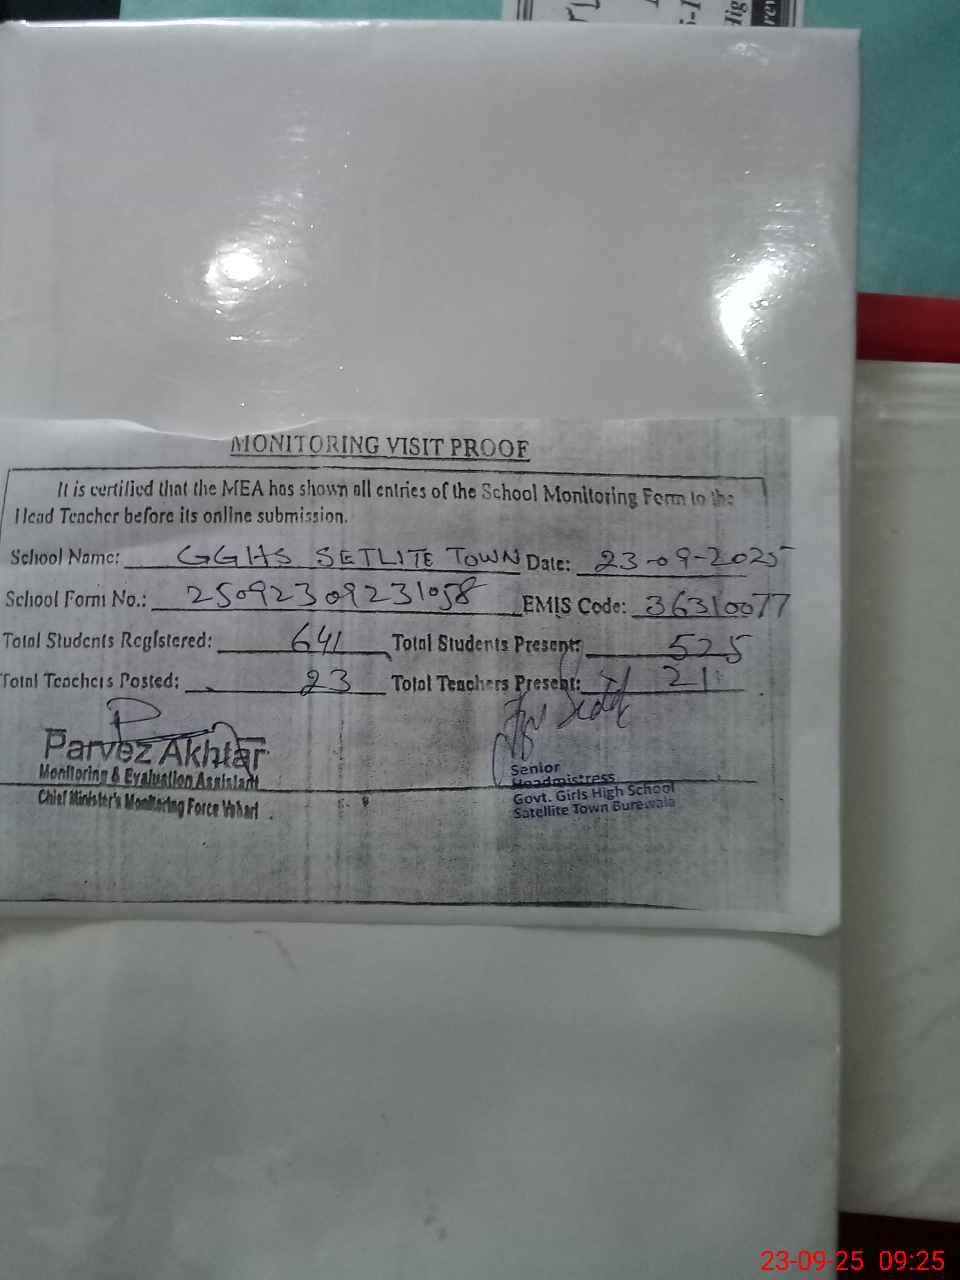 MONITORING VISIT PROOF
It is certified that the MEA has shown all entries of the School Monitoring Form to the
Head Teacher before its online submission.
School Name: GGHS SETLITE TOWN Date: 23-09-2025
School Form No.: 25092309231058 EMIS Code: 36310077
Total Students Registered: 641 Total Students Present: 525
Total Teachers Posted: 23 Total Teachers Present: 21
Parvez Akhtar
Monitoring & Evaluation Assistant
Chief Minister's Monitoring Force Vehari
Senior
Headmistress
Govt. Girls High School
Satellite Town Burewala
23-09-25 09:25